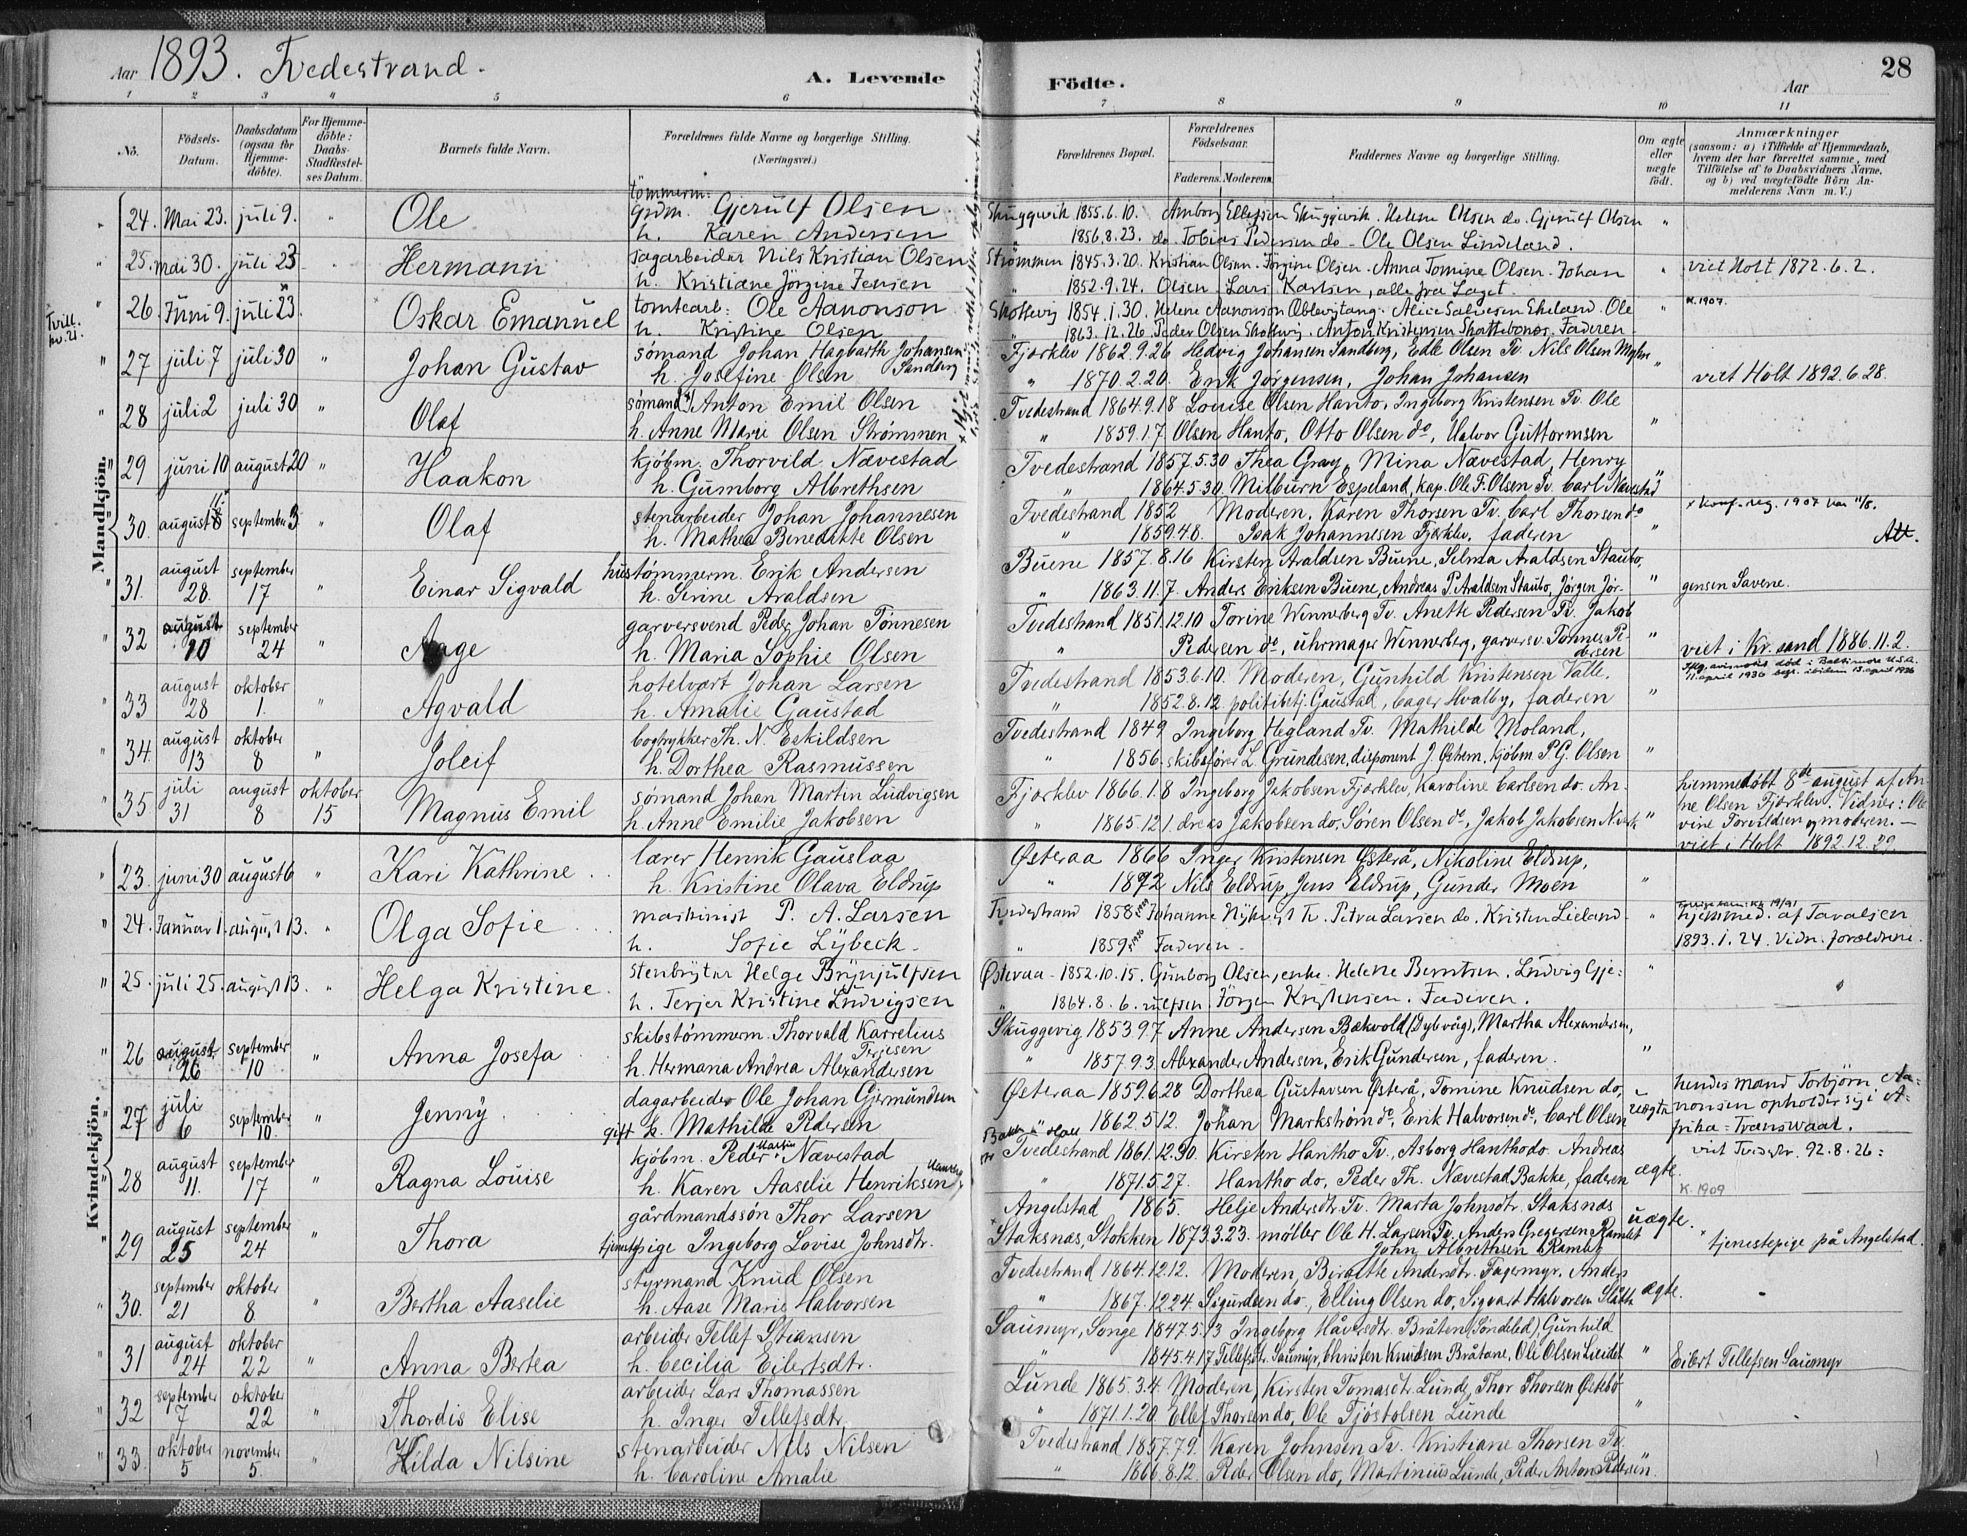 Aar 1893. Tvedestrand. A. Levende Födte. Aar 28
1 2 3 4 5 6 7 8 9 10 11
No. Födsels-Datum. Daabsdatum (ogsaa for Hjemme-döbte). For Hjemme-döbte: Daabs-Stadfæstel-ses Datum. Barnets fulde Navn. Forældrenes fulde Navne og borgerlige Stilling. (Næringsvei.) Forældrenes Bopæl. Forældrenes Födselsaar. Faderens. Moderens. Faddernes Navne og borgerlige Stilling. Om ægte eller uægte födt. Anmærkninger (saasom: a) i Tilfælde af Hjemmedaab, hvem der har forrettet samme, med Tilföielse af to Daabsvidners Navne, og b) ved uægtefödte Börn An-melderens Navn m. V.)
Mandkjön.
24. Mai 23. juli 9. " Ole tömmerm. Grdm. Gjerulf Olsen Skuggevik 1855.6.10. Amborg Ellefsen Skuggevik. Helene Olsen do. Gjerulf Olsen "
h. Karen Andersen " 1856.8.23. do Tobias Pedersen do - Ole Olsen Lindeland.
25. mai 30. juli 23 Hermann sagarbeider Nils Kristian Olsen Strømmen 1845.3.20. Kristian Olsen. Jörgine Olsen. Anna Tomine Olsen. Johan " viet Holt 1872.6.2.
h. Kristiane Jörgine Jensen " 1852.9.24. Olsen Lars Karlsen, alle fra Laget.
26. Juni 9. juli 23. Oskar Emanuel tomtearb: Ole Aanonson Skottevig 1854.1.30. Helene Aanonson. Alice Salvesen Ekeland. Ole " K. 1907.
h. Kristine Olsen " 1863.12.26. Peder Olsen Skottevig. Anton Kristensen. Faderen
Tvill.
27 juli 7 juli 30 " Johan Gustav sømand Johan Hagbarth Johansen Sandberg Fjærklev 1862.9.26 Hedvig Johansen Sandberg, Edle Olsen Tv. Nils Olsen "
h. Josefine Olsen " 1870.2.20. Erik Jørgensen, Johan Johansen viet Holt 1892.6.28.
28 juli 2 juli 30 " Olaf sømand Anton Emil Olsen Tvedestrand 1864.9.18 Louise Olsen Hanto, Ingeborg Kristensen Tv. Ole
h. Anne Marie Olsen Strømmen " 1859.1.7. Olsen Hanto, Otto Olsen do, Halvor Guttormsen "
29 juni 10 august 20 " Haakon kjøbm. Thorvild Nævestad Tvedestrand 1857.5.30 Thea Gray, Mina Nævestad, Henry
h. Gumborg Albrethsen " 1864.5.30. Milburn Espeland, kap. Ole F. Olsen Tv. Carl Nævestad "
30. august 8 september 3 " Olaf stenarbeider Johan Johannesen Tvedestrand 1852 Moderen, Karen Thorsen Tv. Carl Thorsen do
h. Mathea Benedikte Olsen " 1859.4.8. Isak Johannesen Fjærklev, faderen "
31. august 28. september 17 " Einar Sigvald hustømmerm. Erik Andersen Buene 1857.8.16 Kirsten Araldsen Buene, Selma Araldsen Staubo,
h. Serine Araldsen " 1863.11.7. Anders Eriksen Buene, Andreas P. Araldsen Staubo, Jørgen Jør- " gensen Savene.
32 august 10 september 24 " Aage garversvend Peder Johan Tönnesen Tvedestrand 1851.12.10 Torine Wennerberg Tv. Anette Pedersen Tv. Jakob
h. Maria Sophie Olsen " Pedersen do, uhrmager Wennerberg, garversv. Tönnes Pe-dersen " viet i Kr.sand 1886.11.2.
33 august 28 oktober 1. " Agvald hotelvært Johan Larsen Tvedestrand 1853.6.10. Moderen, Gunhild Kristensen Valle. død i Baltimore U.S.A. 11. april 1936
h. Amalie Gaustad " 1852.8.12 politibetj. Gaustad, bager Hvalby, faderen "
34. august 13 oktober 8 " Joleif bogtrykker Th. N. Eskildsen Tvedestrand 1849 Ingeborg Hegland Tv. Mathilde Moland,
h. Dorthea Rasmussen " 1856. skibsfører L. Grundesen, disponent J. Østrem, kjøbm P.G. Olsen "
35 juli 31 august 8 oktober 15 Magnus Emil sømand Johan Martin Ludvigsen Fjærklev 1866.1.8 Ingeborg Jakobsen Fjærklev, Karoline Carlsen do. An- hjemmedøbt 8de august af An-
h. Anne Emilie Jakobsen " 1865.12.1. dreas Jakobsen do, Sören Olsen do, Jakob Jakobsen " ne Olsen Fjærklev. Vidner: Ole
vine Torvildsen og moderen. -
viet i Holt 1892.12.29
Kvindekjön.
23. juni 30 august 6 " Kari Kathrine lærer Henrik Gauslaa Østeraa 1866 Inger Kristensen Østerå, Nikoline Eldrup,
h. Kristine Olava Eldrup " 1872 Nils Eldrup, Jens Eldrup, Gunder Moen "
24. Januar 1. august 13. Olga Sofie maskinist P. A. Larsen Tvedestrand 1858 Johanne Nykvist Tv. Petra Larsen do. Kristen Lieland " hjemmed. af
h. Sofie Lybeck " 1859 Faderen. 1893.1.24. Vidn. forældrene.
25. juli 25. august 13. " Helga Kristine stenbryter Helge Brynjulfsen Østeraa - 1852.10.15. Gunborg Olsen, enke. Helene Berntsen. Ludvig Gje: "
h. Terjer Kristine Ludvigsen " 1864.8.6. rulfsen. Jörgen Kristensen. Faderen. "
26 august 26 september 10 " Anna Josefa skibstømmerm. Thorvald Karrelius Terjesen Skuggevig 1853.9.7 Anne Andersen Bækvold (Dybvåg), Martha Alexandersen,
h. Hermana Andrea Alexandersen " 1857.9.3. Alexander Andersen, Erik Gundersen, faderen. "
27 juli 6 september 10. Jenny dagarbeider Ole Johan Gjermundsen Østeraa 1859.6.28 Dorthea Gustavsen Østerå, Tomine Knudsen do, uægte hendes mand Torbjørn Aa-
gift k. Mathilde Pedersen 1862.5.12. Johan Markstrøm do, Erik Halvorsen do, Carl Olsen nonsen opholder sig i A-
frika = Transvaal.
28 august 11. september 17 " Ragna Louise kjøbm. Peder Martin Nævestad Tvedestrand 1861.12.30. Kirsten Hantho Tv, Asborg Hantho do. Andreas ægte viet Tvedestr. 92.8.26:
h. Karen Aaselie Henriksen " 1871.5.27. Hantho do, Peder Th. Nævestad Bakke, faderen K. 1909
29 august 25 september 24 " Thora gårdmandssøn Thor Larsen Angelstad 1865. Helje Andersdtr Tv. Marta Johnsdtr. Staksnæs uægte.
tjenestpige Ingeborg Lovise Johnsdtr. Staksnæs, Stokken 1873.3.23. møller Ole H. Larsen Tv. Anders Gregersen Ramlet John Albrethsen Ramlet tjenestepige på Angelstad.
30. september 21 oktober 8 " Bertha Aaselie styrmand Knud Olsen Tvedestrand 1864.12.12. Moderen, Birgitte Andersdtr. Fagermyr. Anders ægte.
h. Aase Marie Halvorsen " 1867.12.24. Sigurdsen do., Elling Olsen do, Sigvart Halvorsen
31 august 24 oktober 22 " Anna Bertea arbeider Tellef Stiansen Saumyr, Songe 1847.5.13 Ingeborg Håversdtr. Bråten (Söndeled), Gunhild
h. Cecilia Eilertsdtr. " 1845.4.17 Tellefsdtr. Saumyr, Christen Knudsen Bråtane, Ole Olsen " Eilert Tellefsen Saumyr
32 september 7 oktober 22 " Thordis Elise arbeider Lars Thomassen Lunde 1865.3.4. Moderen, Kirsten Tomasdtr. Lunde, Thor Thorsen Østebø
h. Inger Tellefsdtr " 1871.1.20. Ellef Thorsen do, Ole Fjøstolsen Lunde "
33. oktober 5 november 5. " Hilda Nilsine stenarbeider Nils Nilsen Tvedestrand 1857.7.9. Karen Johnsen Tv. Kristiane Thorsen Tv.
h. Caroline Amalie " 1866.8.12. Peder Olsen do, Martinius Lunde, Peder Anton Pedersen "